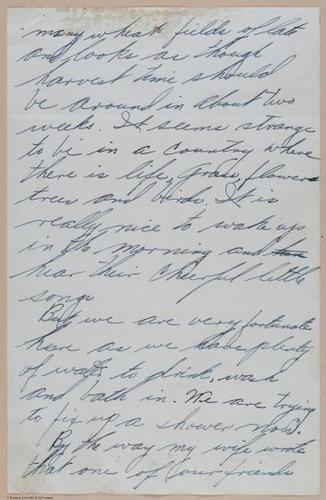 many wheat fields of late
and looks as though
harvest time should
be around in about two
weeks. It seems strange
to be in a country where
there is life, grass, flowers
trees and birds. It is
really nice to wake up
in the morning and
hear their cheerful little
songs
But we are very fortunate
here as we have plenty
of water to drink, wash
and bath in. We are trying
to fix up a shower now.
By the way my wife wrote
that one of our friends